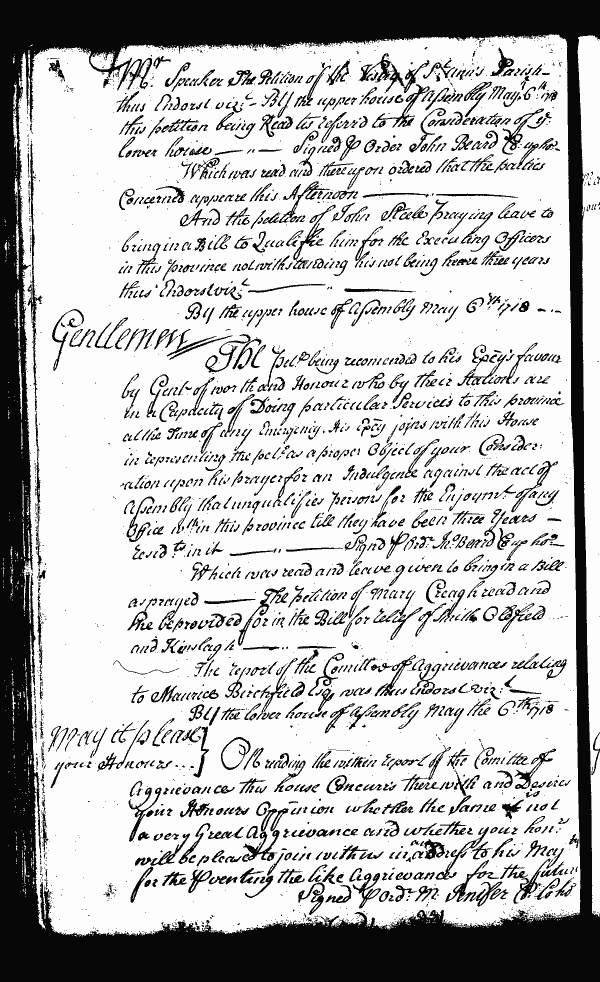 Mr Speaker The Petition of the Vestry of St Anns Parish
thus Endorst vizt By the upper house of Assembly May 6th 1718
this petition being Read tis referrd to the Consideration of ye
lower house — Signed P Order John Beard Cl: up hos
Which was read and thereupon ordered that the parties
Concerned appeare this Afternoon
And the petition of John Steele praying leave to
bring in a Bill to Qualifie him for the Executing Offices
in this province notwithstanding his not being heere three years
thus Endorst vizt
By the upper house of Assembly May 6th 1718
Gentlemen
The petr being recomended to his Excys favour
by Gent of worth and Honour who by their Stations are
in a Capacity of Doing particular Services to this province
at the Time of any Emergency. His Excy joins with this House
in representing the petr as a proper Object of your Consider
ation upon his prayer for an Indulgence against the act of
Assembly that unqualifies persons for the Enjoymt of any
Office wthin this province till they have been three Years
resid:ts in it — Signd P Ordr Jno Beard Cl up hos
Which was read and leave given to bring in a Bill
as prayed — The petition of Mary Creagh read and
she be provided for in the Bill for relief of Smith Oldfield
and Kinslagh
The report of the Comittee of Aggrievances relating
to Maurice Birchfield Esq was thus Endorst vizt
By the lower house of Assembly May the 6th 1718
May it please
your Honours...
On reading the within report of the Comittee of
Aggrievance this house Concurrs therewith and Desires
your Honours Oppinion whether the Same is not
a very Great Aggrievance and whether your honrs
will be pleased to join with us in an address to his Maj ty
for the Pventing the like Aggrievances for the future
Signed P Ordr M. Jenifer Cl. Lo ho